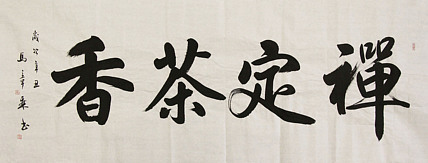 禪定茶香
歲次辛丑
馬